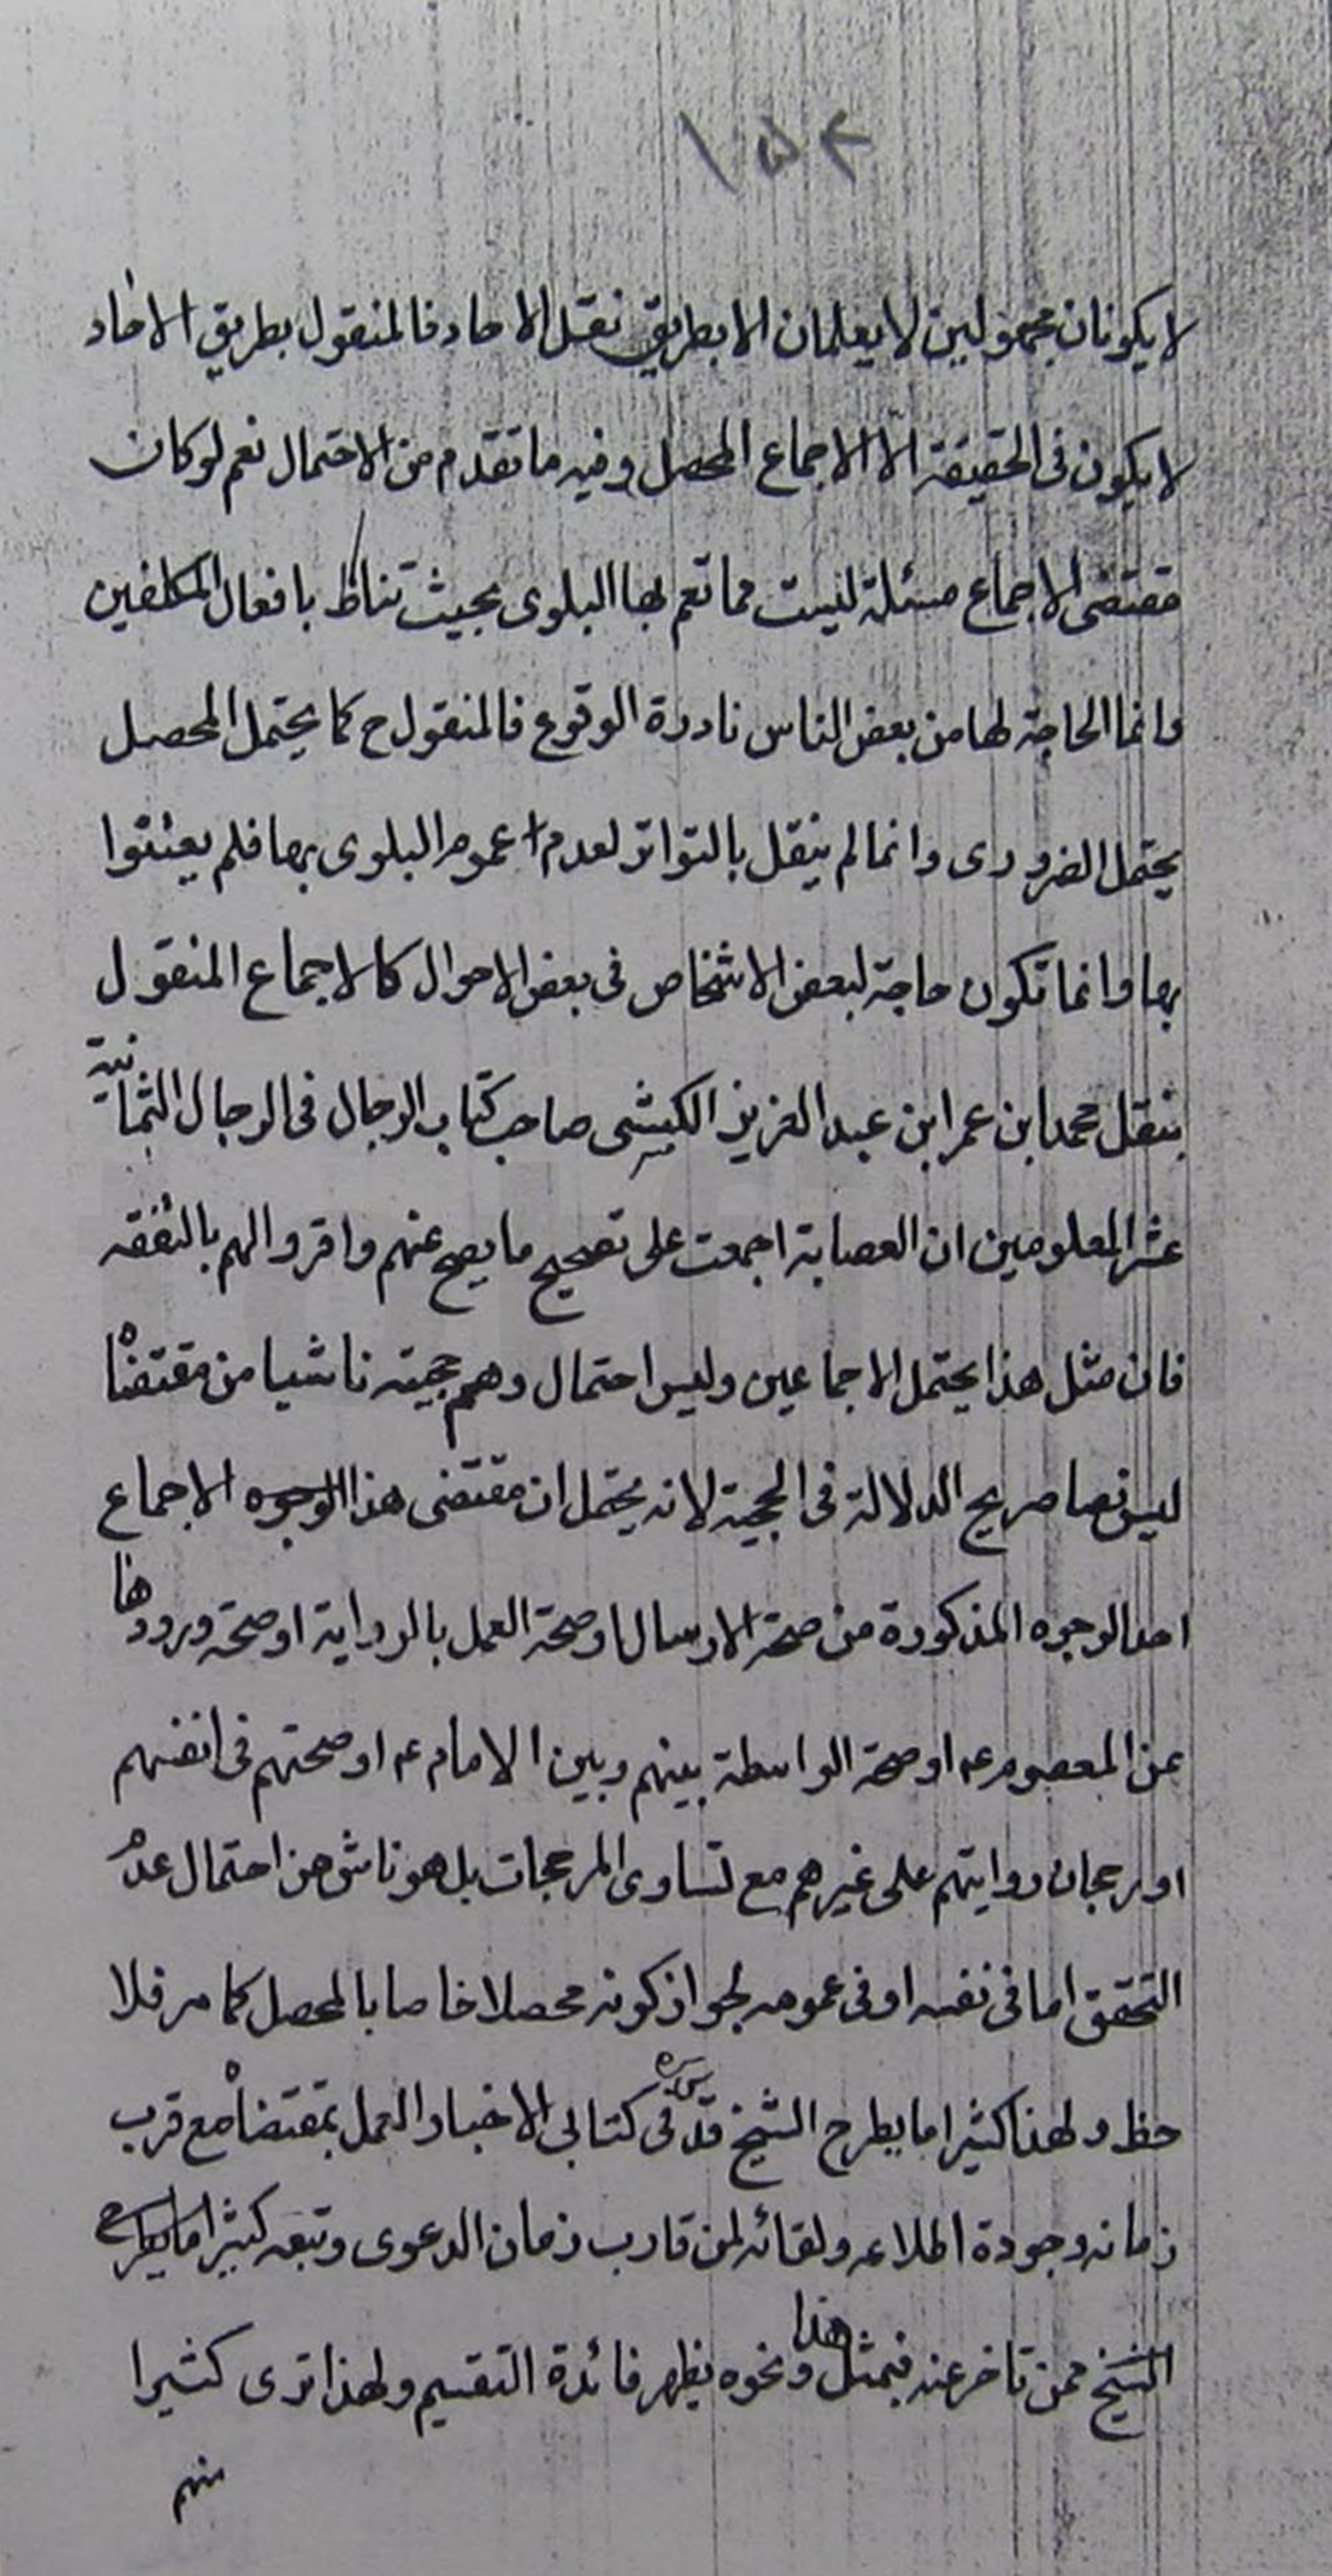 ١٥٢
لا يكونان مجهولين لا يعلمان الا بطريق نقل الاحاد فالمنقول بطريق الاحاد
لا يكون فى الحقيقة الّا الاجماع المحصل وفيه ما تقدم من الاحتمال نعم لو كان
مقتضى الاجماع مسئلة ليست مما تعم بها البلوى بحيث تناط بافعال المكلفين
وانما الحاجة لها من بعض الناس نادرة الوقوع فالمنقول ح كما يحتمل المحصل
يحتمل الضرورى وانما لم ينقل بالتواتر لعدم عموم البلوى بها فلم يعتنوا
بها وانما تكون حاجة لبعض الاشخاص فى بعض الاحوال كالاجماع المنقول
بنقل محمد ابن عمر ابن عبد العزيز الكشى صاحب كتاب الرجال فى الرجال الثمانية
عشر المعلومين ان العصابة اجمعت على تصحيح ما يصح عنهم واقروا لهم بالفقه
فان مثل هذا يحتمل الاجماعين وليس احتمال وهم حجيته ناشيا من مقتضاه
ليس نصا صريح الدلالة فى الحجية لانه يحتمل ان مقتضى هذا الاجماع
احد الوجوه المذكورة من صحة الارسال او صحة العمل بالرواية او صحة ورودها
عن المعصوم ع او صحة الواسطة بينهم وبين الامام ع او صحتهم فى انفسهم
او رجحان روايتهم على غيرهم مع تساوى المرجحات بل هو ناش من احتمال عدم
التحقق اما فى نفسه او فى عمومه لجواز كونه محصلا خاصا بالمحصل كما مر فلا
حظ ولهذا كثيرا ما يطرح الشيخ قدس سره فى كتابى الاخبار العمل بمقتضاه مع قرب
زمانه وجودة اطلاعه ولقائه لمن قارب زمان الدعوى وتبعه كثيرا ما يطرح
الشيخ ممن تاخر عنه فبمثل هذا ونحوه يظهر فائدة التقسيم ولهذا ترى كثيرا
منهم